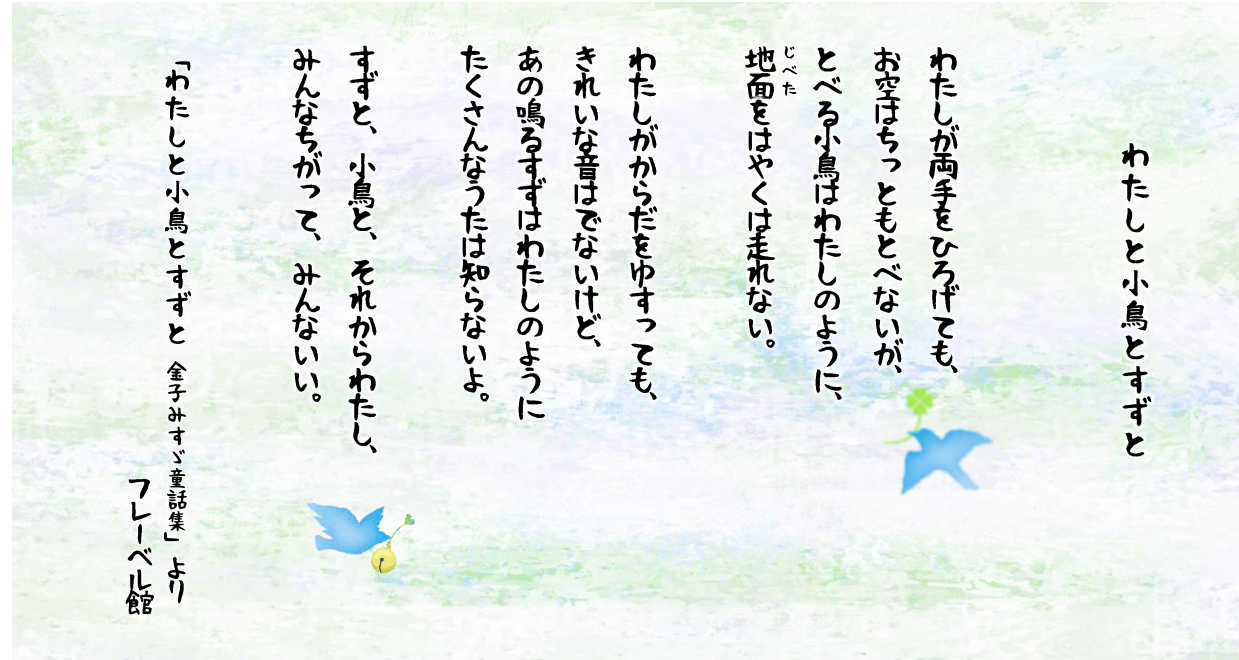 わたしと小鳥とすずと
わたしが両手をひろげても、
お空はちっともとべないが、
とべる小鳥はわたしのように、
地面をはやくは走れない。
じべた
わたしがからだをゆすっても、
きれいな音はでないけど、
あの鳴るすずはわたしのように
たくさんなうたは知らないよ。
すずと、小鳥と、それからわたし、
みんなちがって、みんないい。
「わたしと小鳥とすずと 金子みすゞ童話集」より
フレーベル館